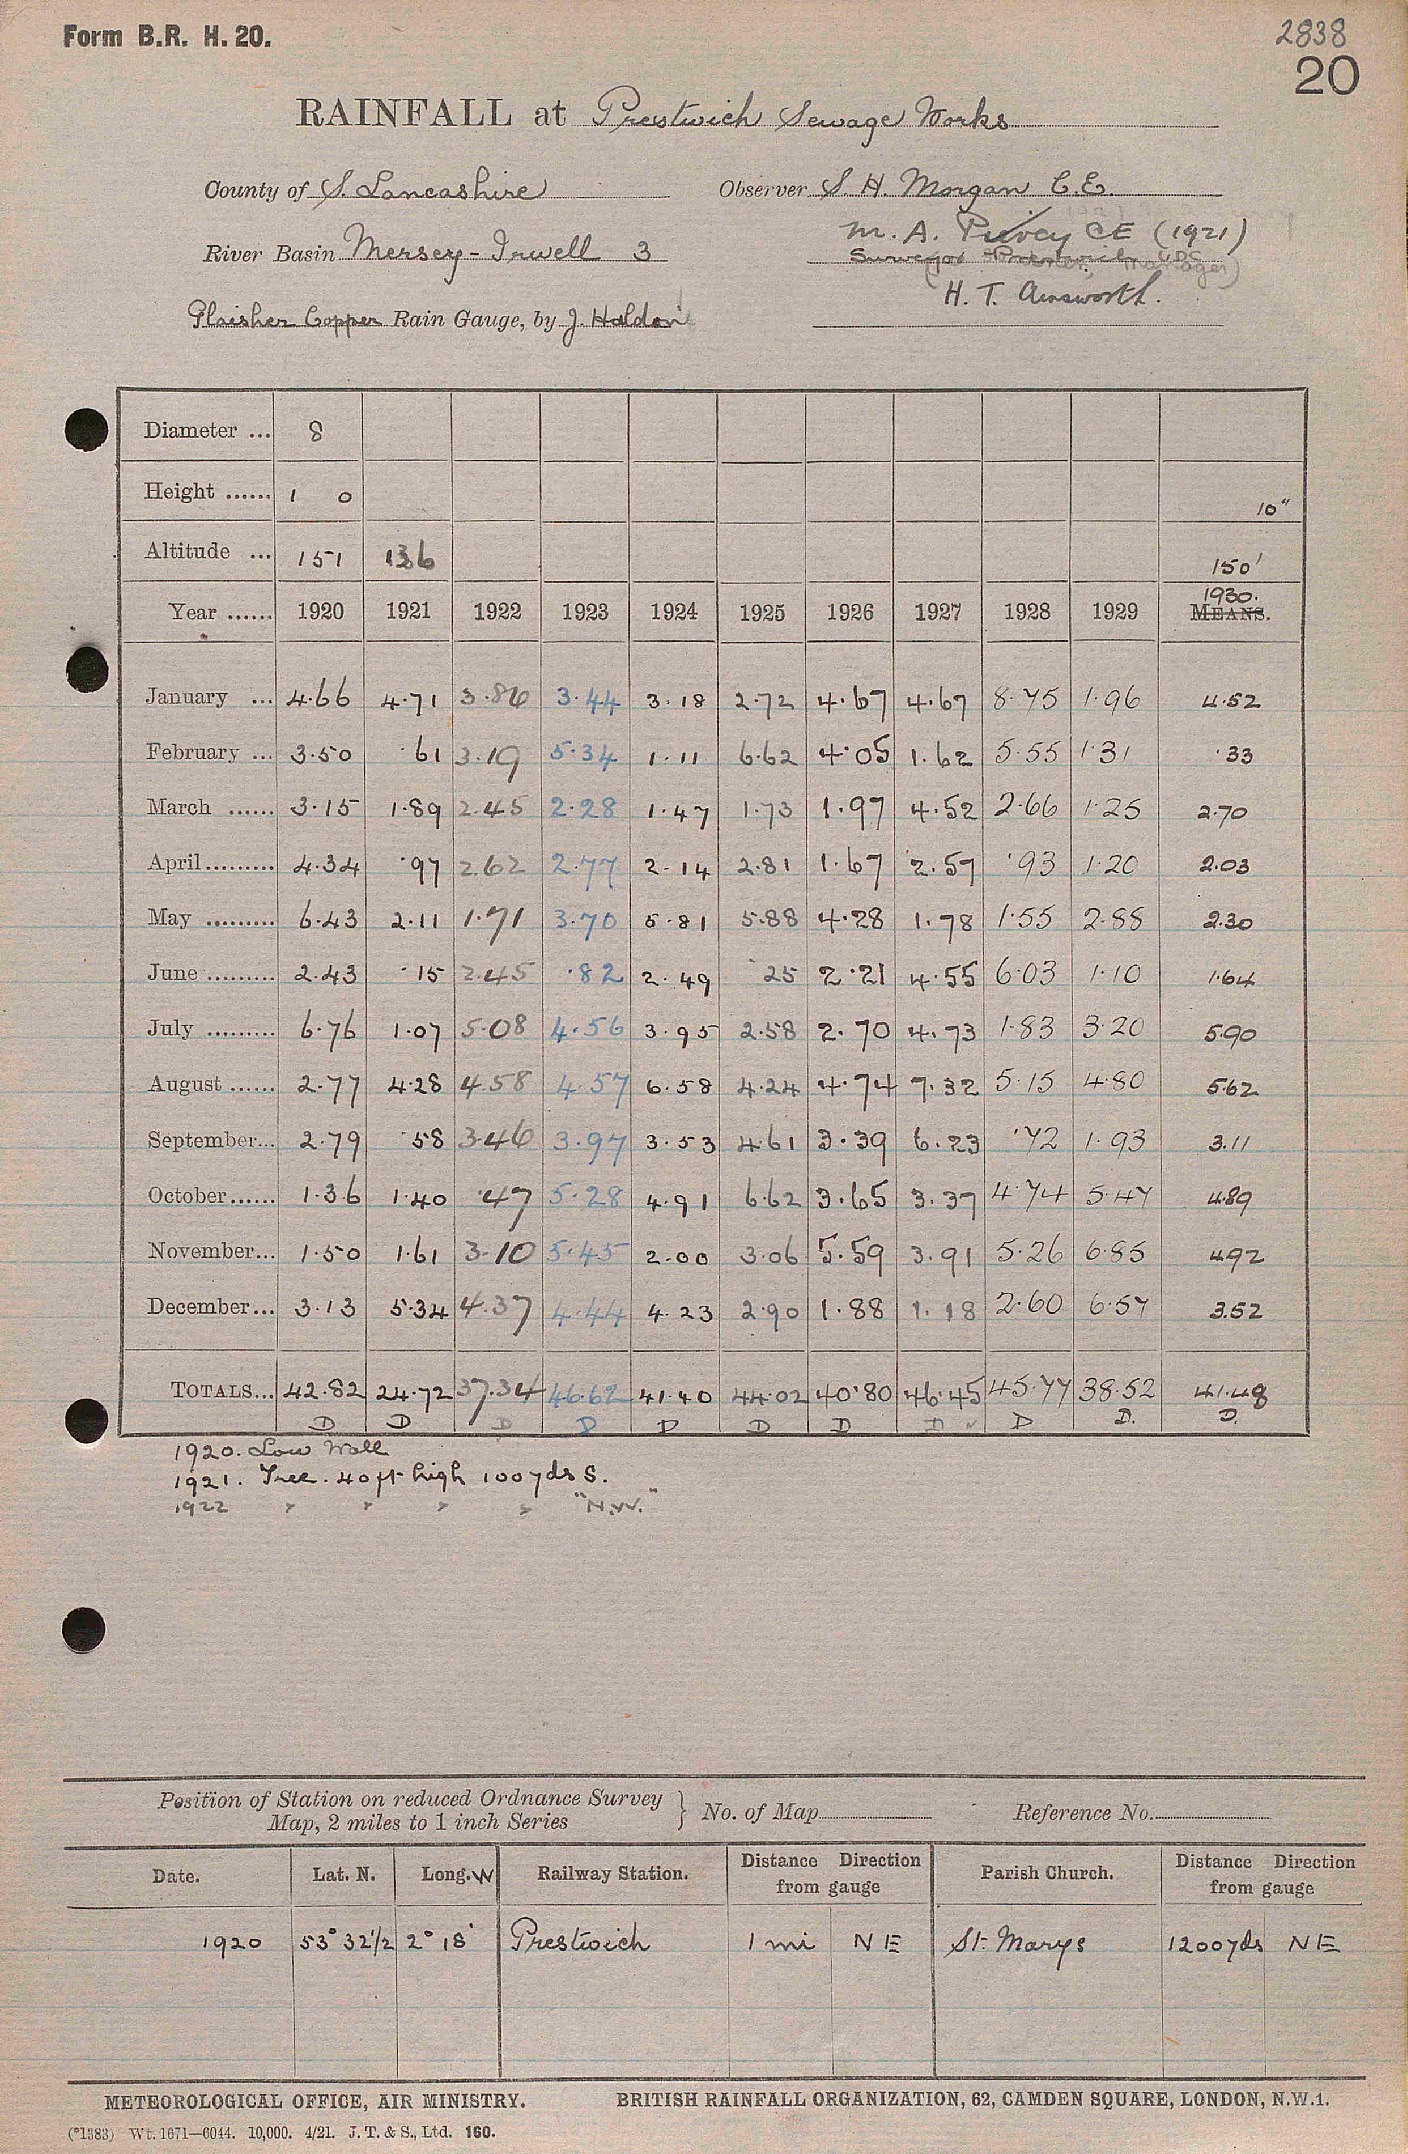 Form B.R. H. 20.
2838
20
RAINFALL at Prestwich Sewage Works
County of S. Lancashire Observer S. H. Morgan C.E.
River Basin Mersey - Irwell 3 M. A. Pivey CE (1921)
Surveyor Prestwich UDC
Manager)
H. T. Ainsworth.
Copper Rain Gauge, by J. Haldon
Diameter ... 8
Height ...... 1 0 10"
Altitude ... 151 136 150'
Year ...... 1920 1921 1922 1923 1924 1925 1926 1927 1928 1929 1930. MEANS.
January ... 4.66 4.71 3.86 3.44 3.18 2.72 4.67 4.67 8.75 1.96 4.52
February ... 3.50 .61 3.19 5.34 1.11 6.62 4.05 1.62 5.55 1.31 .33
March ...... 3.15 1.89 2.45 2.28 1.47 1.73 1.97 4.52 2.66 1.25 2.70
April ......... 4.34 .97 2.62 2.77 2.14 2.81 1.67 2.57 .93 1.20 2.03
May ......... 6.43 2.11 1.71 3.70 5.81 5.88 4.28 1.78 1.55 2.88 2.30
June ......... 2.43 .15 2.45 .82 2.49 .25 2.21 4.55 6.03 1.10 1.64
July ......... 6.76 1.07 5.08 4.56 3.95 2.58 2.70 4.73 1.83 3.20 5.90
August ...... 2.77 4.28 4.58 4.57 6.58 4.24 4.74 7.32 5.15 4.80 5.62
September... 2.79 .58 3.46 3.97 3.53 4.61 3.39 6.23 .72 1.93 3.11
October ...... 1.36 1.40 .47 5.28 4.91 6.62 3.65 3.37 4.74 5.47 4.89
November... 1.50 1.61 3.10 5.45 2.00 3.06 5.59 3.91 5.26 6.85 4.92
December... 3.13 5.34 4.37 4.44 4.23 2.90 1.88 1.18 2.60 6.57 3.52
TOTALS... 42.82 24.72 37.34 46.62 41.40 44.02 40.80 46.45 45.77 38.52 41.48
D D D D D D D D D D. D.
1920. Low Wall
1921. Tree. 40 ft high 100 yds S.
1922 " " " " "N.W."
Position of Station on reduced Ordnance Survey Map, 2 miles to 1 inch Series } No. of Map Reference No.
Date. Lat. N. Long. W Railway Station. Distance Direction from gauge Parish Church. Distance Direction from gauge
1920 53° 32½ 2° 18' Prestwich 1 mi NE St. Marys 1200 yds NE
METEOROLOGICAL OFFICE, AIR MINISTRY. BRITISH RAINFALL ORGANIZATION, 62, CAMDEN SQUARE, LONDON, N.W.1.
(*1383) Wt. 1671—6044. 10,000. 4/21. J. T. & S., Ltd. 160.